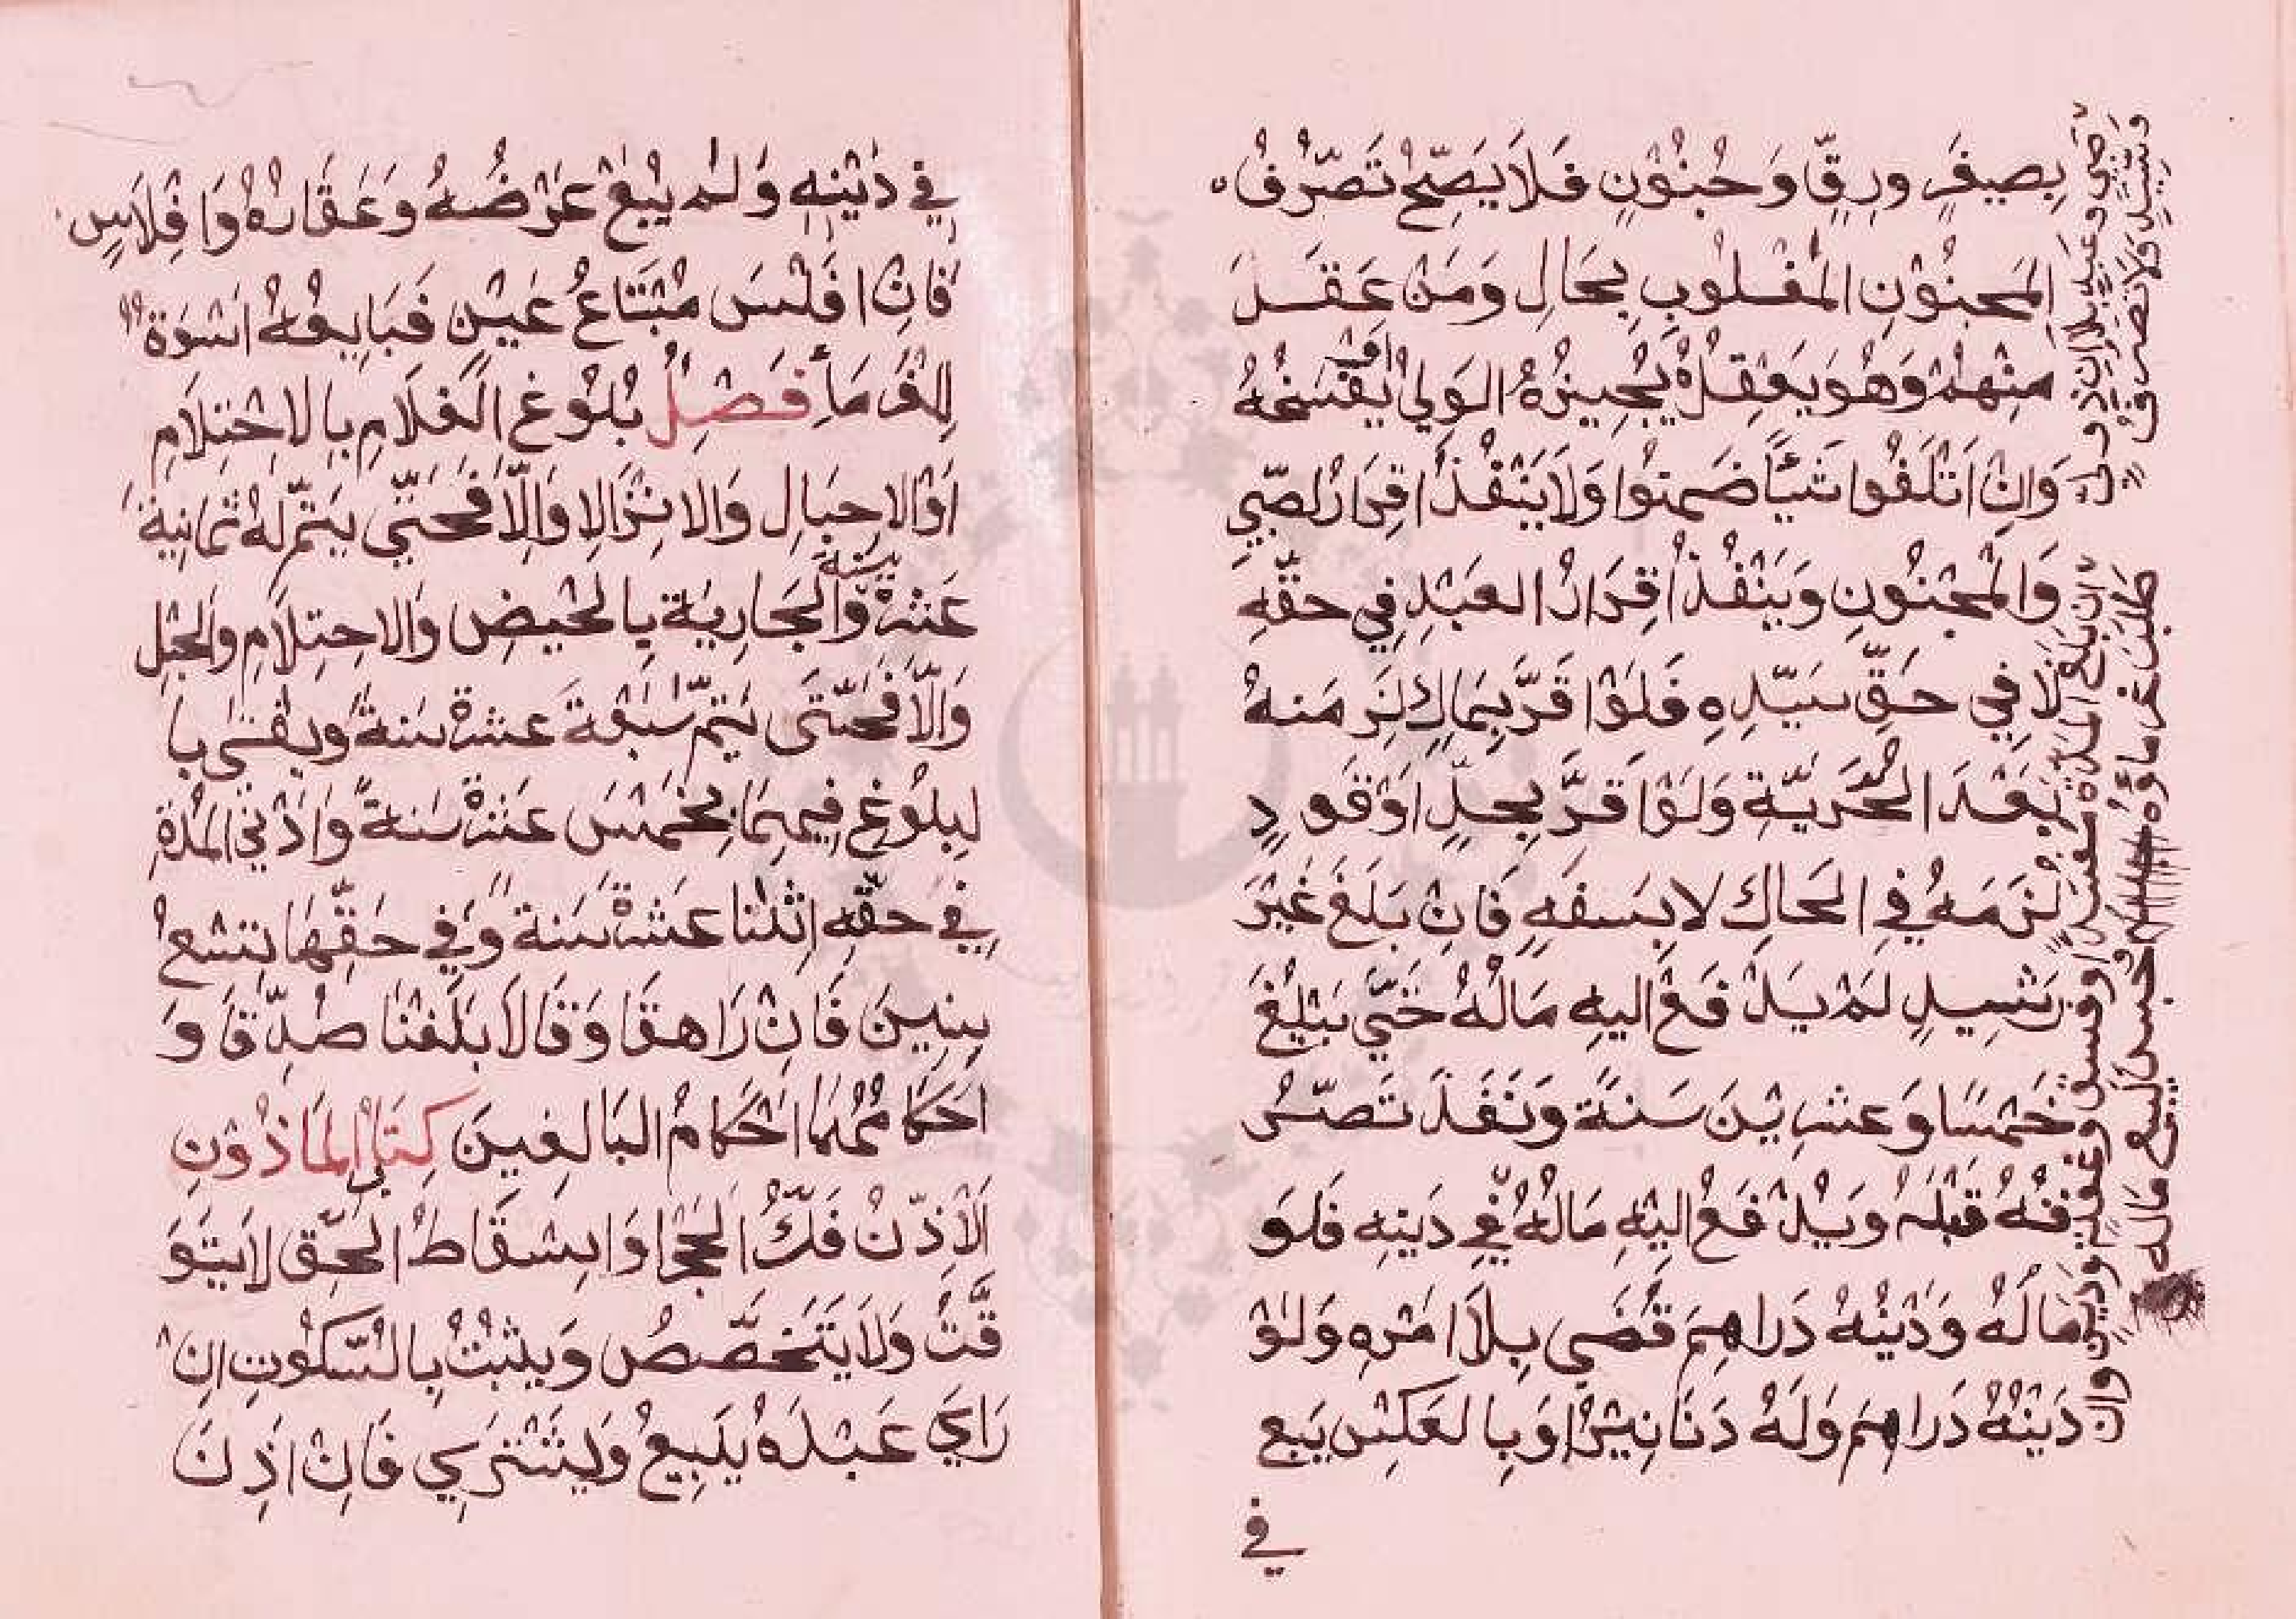 بِصِغَرٍ وَرِقٍّ وَجُنُوْنٍ فَلَا يَصِحُّ تَصَرُّفُ
المَجنُوْنِ المَغْلُوبِ بِحَالٍ وَمَنْ عَقَدَ
مِنْهُمْ وَهُوَ يَعْقِلُهُ يُجِيزُهُ الوَلِيُّ اَوْ يَفْسَخُهُ
وَاِنْ اَتْلَفُوا شَيْئًا ضَمِنُوا وَلَا يَنْفُذُ اِقْرَارُ الصَّبِي
وَالْمَجْنُونِ وَيَنْفُذُ اِقْرَارُ العَبْدِ فِي حَقِّهِ
لَا فِي حَقِّ سَيِّدِهِ فَلَوْ اَقَرَّ بِمَالٍ لَزِمَهُ
بَعْدَ الحُرِّيَّةِ وَلَوْ اَقَرَّ بِحَدٍّ اَوْ قَودٍ
لَزِمَهُ فِي الحَالِ لا بِسَفَهٍ فَاِنْ بَلَغَ غَيْرَ
رَشِيدٍ لَمْ يَدْفَعْ اليهِ مَالُهُ حَتّٰي يَبْلُغَ
خَمْسًا وَعِشْرِيْنَ سَنَةً وَنَفَذَ تَصَرُّ
فُهُ قَبْلَهُ وَيُدْفَعُ اليْهِ مَالُهُ فِي دَينِهِ فَلَو
مَالُهُ وَدَيْنُهُ دَرَاهِمَ قُضِيَ بِلَا اَمْرِهِ وَلَوْ
دَيْنُهُ دَرَاهِمَ وَلَهُ دَنَانِيْرُ اَوْ بِالعَكْسِ يَبِيع
في
صَبِي وَعَبْدٍ بِلَا اِذْنِ وَلِي
وَسَيِّدٍ وَلَا تَصَرُّفُ
اِنْ بَلَغَ المُدَّةَ مُفسِدًا وَفِسْقٍ وَغَفْلَةٍ وَدَيْنٍ وَاِن
طَلَبَ غُرَمَاؤُهُ حُبِسَ لِيَبِيعَ مَالَهُ
فِي دَيْنِهِ وَلَمْ يُبَعْ عَرْضُهُ وَعَقَارُهُ وَاِفْلَاسٍ
فَاِنْ اَفْلَسَ مُبْتَاعُ عَيْنٍ فَبَايِعُهُ اُسْوَةٌ
لِلْغُرَمَاءِ فَصْلٌ بُلُوْغُ الْغُلَامِ بِالاِحْتِلَامِ
اَوْ الاِحبَالِ وَالاِنْزَالِ وَاِلَّا فَحَتّٰي يَتِمَّ لَهُ ثَمَانِيَةَ
عَشَرَةَ سَنَةً وَالْجَارِيَةِ بِالْحَيْضِ وَالاِحتِلَامِ وَالْحَبْلِ
وَاِلَّا فَحَتّٰى يَتِمَّ سَبْعَةَ عَشَرَةَ سَنَةً وَيُفْتٰى بِا
لبُلُوْغِ فِيهِمَا بِخَمْسَ عَشْرَةَ سَنَةً وَاَدْنَي المُدَّةِ
فِي حَقِّهِ اِثْنَتَا عَشْرَةَ سَنَةً وَفِي حَقِّهَا تِسْعُ
سِنِينَ فَاِنْ رَاهَقَا وَقَالَا بَلَغْنَا صُدِّقَا وَ
اَحْكَامُهُمَا اَحْكَامُ البَالِغِينَ كِتَابُ المَاذُوْنِ
اَلْاِذْنُ فَكُّ الحَجْرِ وَاِسْقَاطُ الحَقِّ لَا يَتَوَ
قَّتُ وَلَا يَتَخَصَّصُ وَيَثْبُتُ بِالسُّكُوْتِ اِنْ
رَايَ عَبْدَهُ يَبِيعُ وَيَشْتَرِي فَاِنْ اَذِنَ